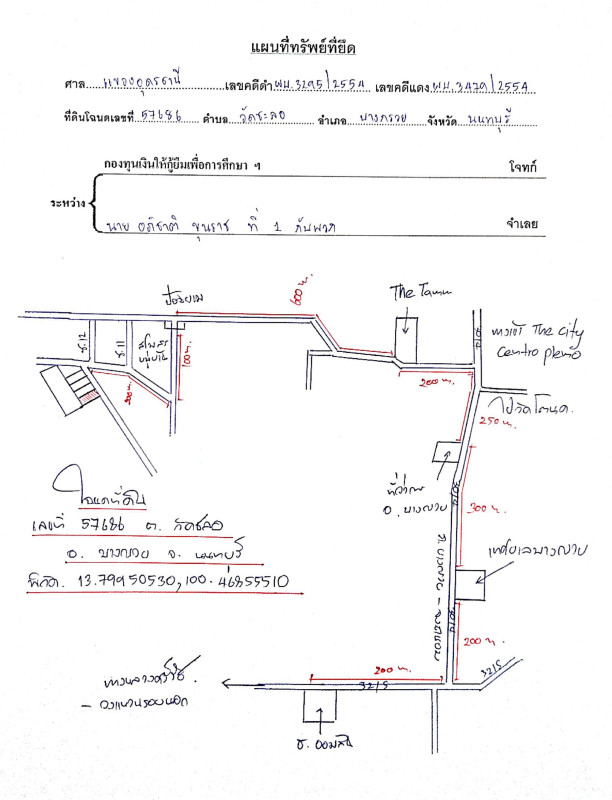 แผนที่ทรัพย์ที่ยึด
ศาล แขวงอุดรธานี เลขคดีดำ ผบ.3295/2554 เลขคดีแดง ผบ.3479/2554
ที่ดินโฉนดเลขที่ 57686 ตำบล วัดชลอ อำเภอ บางกรวย จังหวัด นนทบุรี
กองทุนเงินให้กู้ยืมเพื่อการศึกษา ฯ โจทก์
ระหว่าง
นาย อภิชาติ ขุนราช ที่ 1 กับพวก จำเลย
ป้อมยาม
600 ม.
The Tamm
ซ.12
ซ.11
สโมสร
หมู่บ้าน
100 ม.
ทางเข้า The city
Centro pleno
200 ม.
ไปวัดโตนด
250 ม.
ที่ว่าการ
อ. บางกรวย
300 ม.
โฉนดที่ดิน
เลขที่ 57686 ต. วัดชลอ
อ. บางกรวย จ. นนทบุรี
พิกัด. 13.79950530, 100.46855510
เทศบาลบางกรวย
200 ม.
200 ม.
3215
3215
ธ. ออมสิน